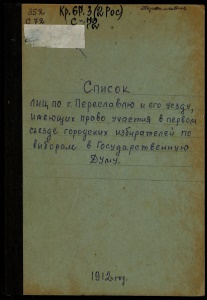 352
С 72
Кр. 6Р. 3(2Рос)
С-72
Список
лиц по г. Переславлю и его уезду,
имеющих право участия в первом
съезде городских избирателей по
выборам в Государственную
Думу.
1912 год.